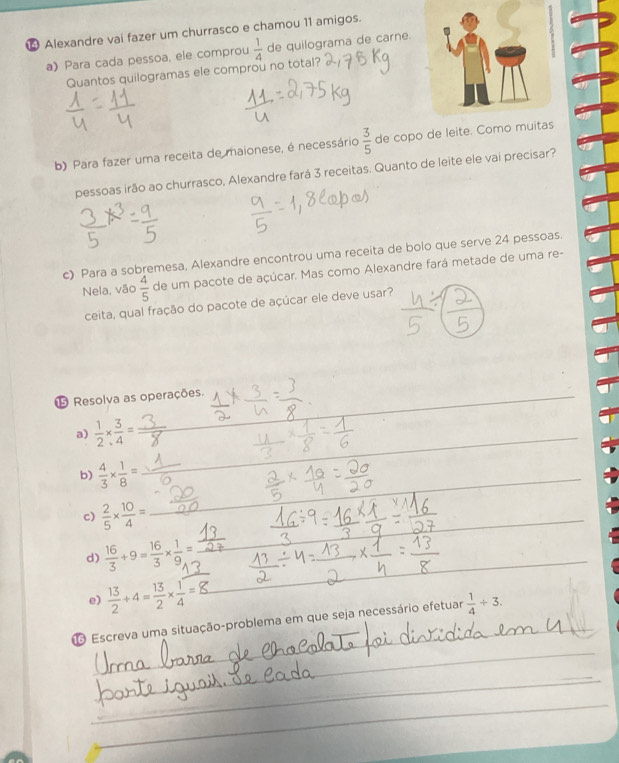 14 Alexandre vai fazer um churrasco e chamou 11 amigos.
a) Para cada pessoa, ele comprou 1/4 de quilograma de carne.
Quantos quilogramas ele comprou no total? 2,75 Kg
1/4 = 11/4
11/4 = 2,75 Kg
b) Para fazer uma receita de maionese, é necessário 3/5 de copo de leite. Como muitas
pessoas irão ao churrasco, Alexandre fará 3 receitas. Quanto de leite ele vai precisar?
3/5 × 3 = 9/5
9/5 = 1,8 copos
c) Para a sobremesa, Alexandre encontrou uma receita de bolo que serve 24 pessoas.
Nela, vão 4/5 de um pacote de açúcar. Mas como Alexandre fará metade de uma re-
ceita, qual fração do pacote de açúcar ele deve usar?
4/5 ÷ 2/5
15 Resolva as operações.
1/2 × 3/4 = 3/8
a) 1/2 × 3/4 = 3/8
4/3 × 1/8 = 1/6
b) 4/3 × 1/8 = 1/6
2/5 × 10/4 = 20/20
c) 2/5 × 10/4 = 20/20
16/3 ÷ 9 = 16/3 × 1/9 = 16/27
d) 16/3 ÷ 9 = 16/3 × 1/9 = 13/27
13/2 ÷ 4 = 13/2 × 1/4 = 13/8
e) 13/2 ÷ 4 = 13/2 × 1/4 = 13/8
16 Escreva uma situação-problema em que seja necessário efetuar 1/4 ÷ 3.
Uma barra de chocolate foi dividida em 4
parte iguais. Se cada